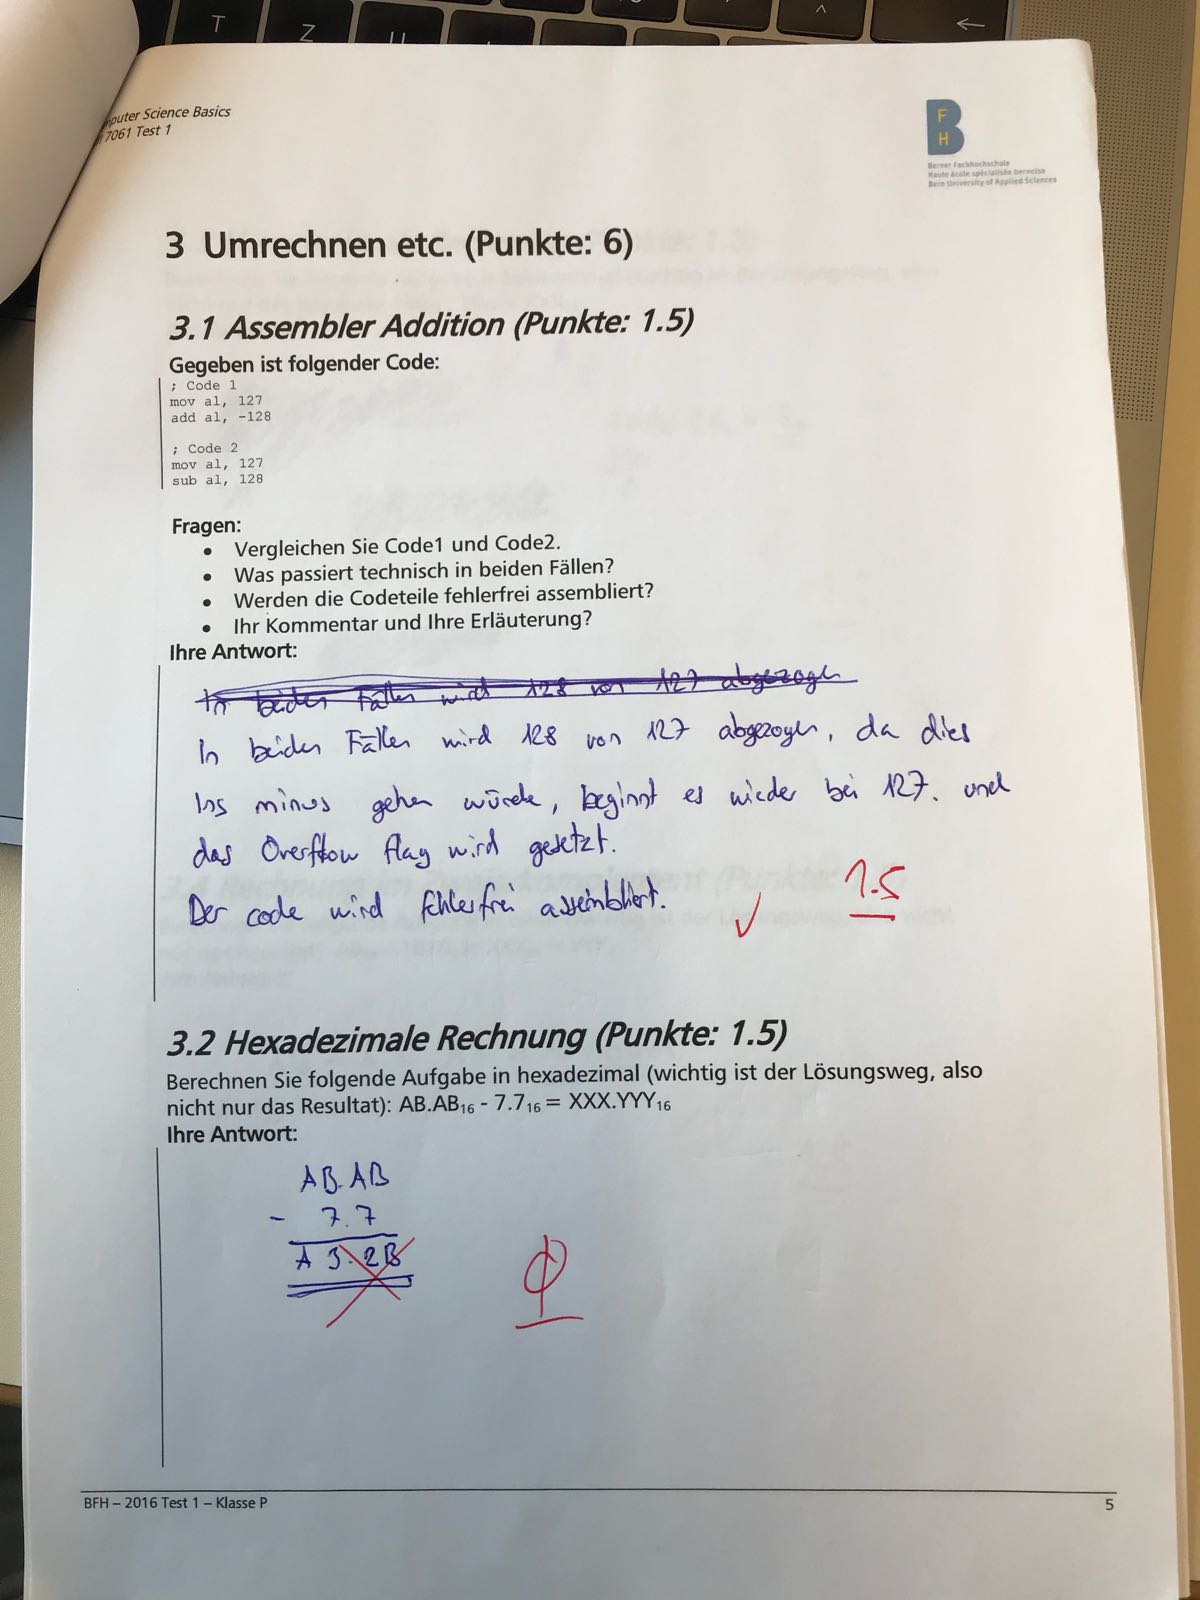 T Z U ^ ←
mputer Science Basics
7061 Test 1
F
H
Berner Fachhochschule
Haute école spécialisée bernoise
Bern University of Applied Sciences
3 Umrechnen etc. (Punkte: 6)
3.1 Assembler Addition (Punkte: 1.5)
Gegeben ist folgender Code:
; Code 1
mov al, 127
add al, -128
; Code 2
mov al, 127
sub al, 128
Fragen:
• Vergleichen Sie Code1 und Code2.
• Was passiert technisch in beiden Fällen?
• Werden die Codeteile fehlerfrei assembliert?
• Ihr Kommentar und Ihre Erläuterung?
Ihre Antwort:
In beiden Fällen wird 128 von 127 abgezogen
In beiden Fällen wird 128 von 127 abgezogen, da dies
Ins minus gehen würde, beginnt es wieder bei 127. und
das Overflow flag wird gesetzt.
1.5
Der code wird fehlerfrei assembliert. ✓
3.2 Hexadezimale Rechnung (Punkte: 1.5)
Berechnen Sie folgende Aufgabe in hexadezimal (wichtig ist der Lösungsweg, also
nicht nur das Resultat): AB.AB16 - 7.716 = XXX.YYY16
Ihre Antwort:
AB.AB
- 7.7
A3.2B
BFH – 2016 Test 1 – Klasse P 5